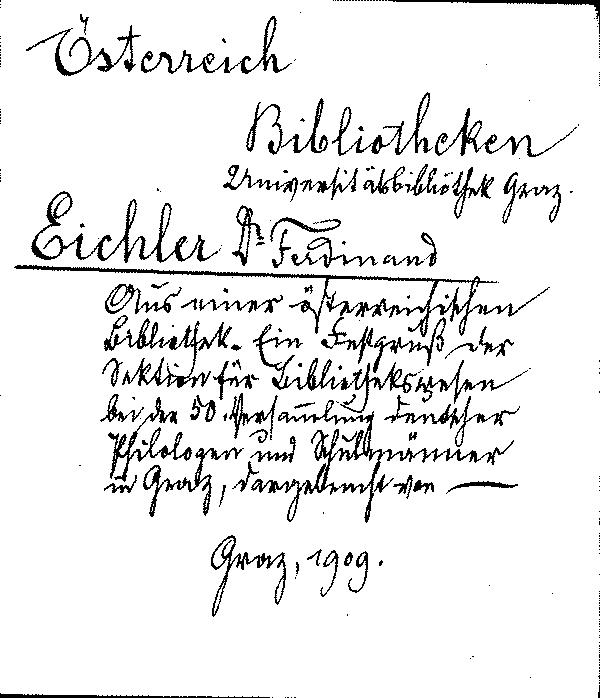 Österreich
Bibliotheken
Universitätsbibliothek Graz.
Eichler Dr. Ferdinand
Aus einer österreichischen
Bibliothek. Ein Festgruß der
Sektion für Bibliothekswesen
bei der 50. Versammlung deutscher
Philologen und Schulmänner
in Graz, dargebracht von —
Graz, 1909.